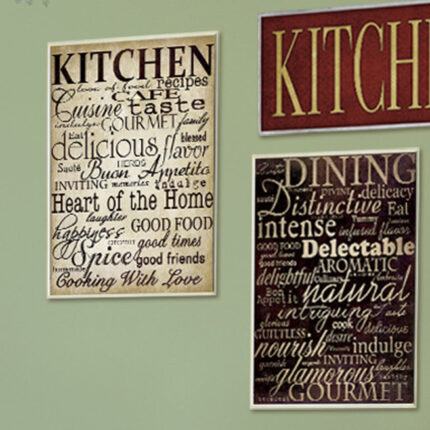 KITCHEN
love of food recipes
CAFE
Cuisine taste
indulge GOURMET family
Eat blessed
delicious flavor
Sauté HERBS
Buon Appetito
INVITING memories indulge
Heart of the Home
laughter
happiness GOOD FOOD
good times
Spice good friends
homemade
Cooking With Love
KITCHE
DINING
DIVINE delicacy
Distinctive Eat
Yummy
intense infused flavor
GOOD FOOD Delectable
good times
good friends AROMATIC
delightful culinary
Bon Appetit natural
intriguing
glorious cook delicious
GUILTLESS desire
nourish indulge
INVITING laughter
glamorous
GOURMET